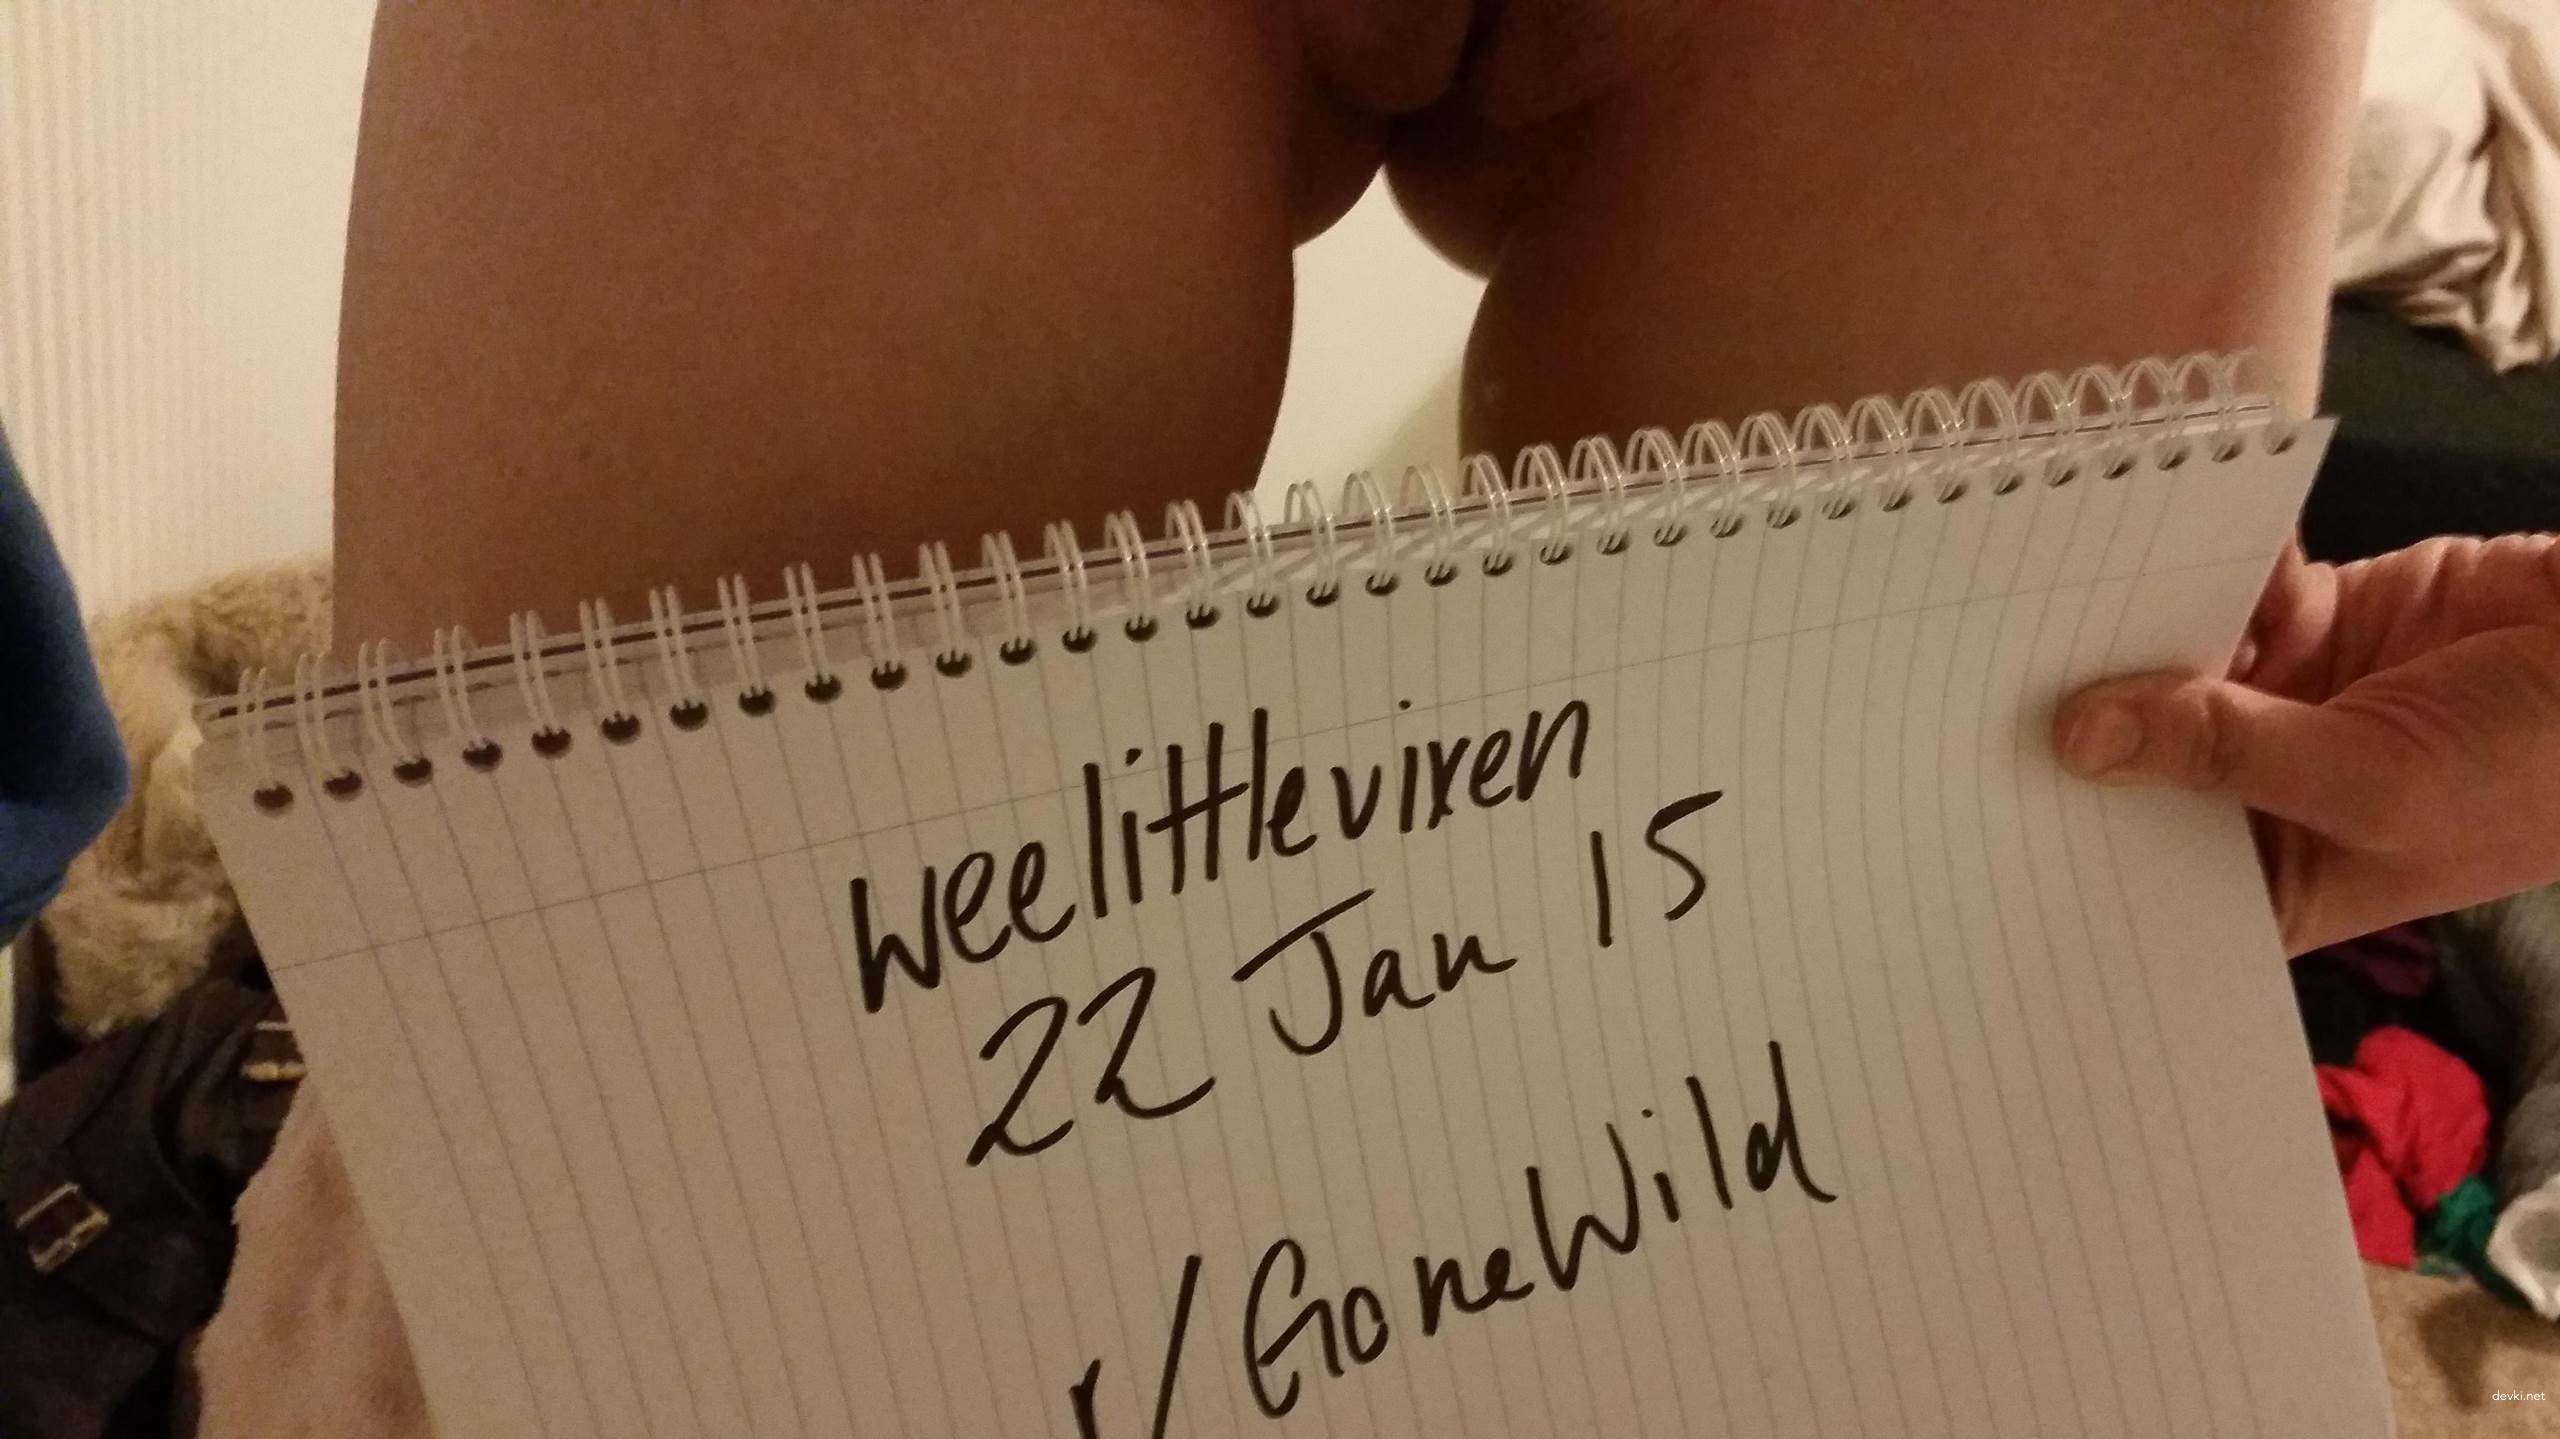 weelittlevixen
22 Jan 15
r/GoneWild
devki.net